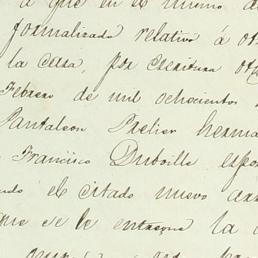 á que en el mismo
formalizado relativo á
la Cesa, por Escritura
Febrero de mil ochocientos
Pantaleon Prelier herma
Francisco Duboille espo
el citado nuevo
se le entregue la